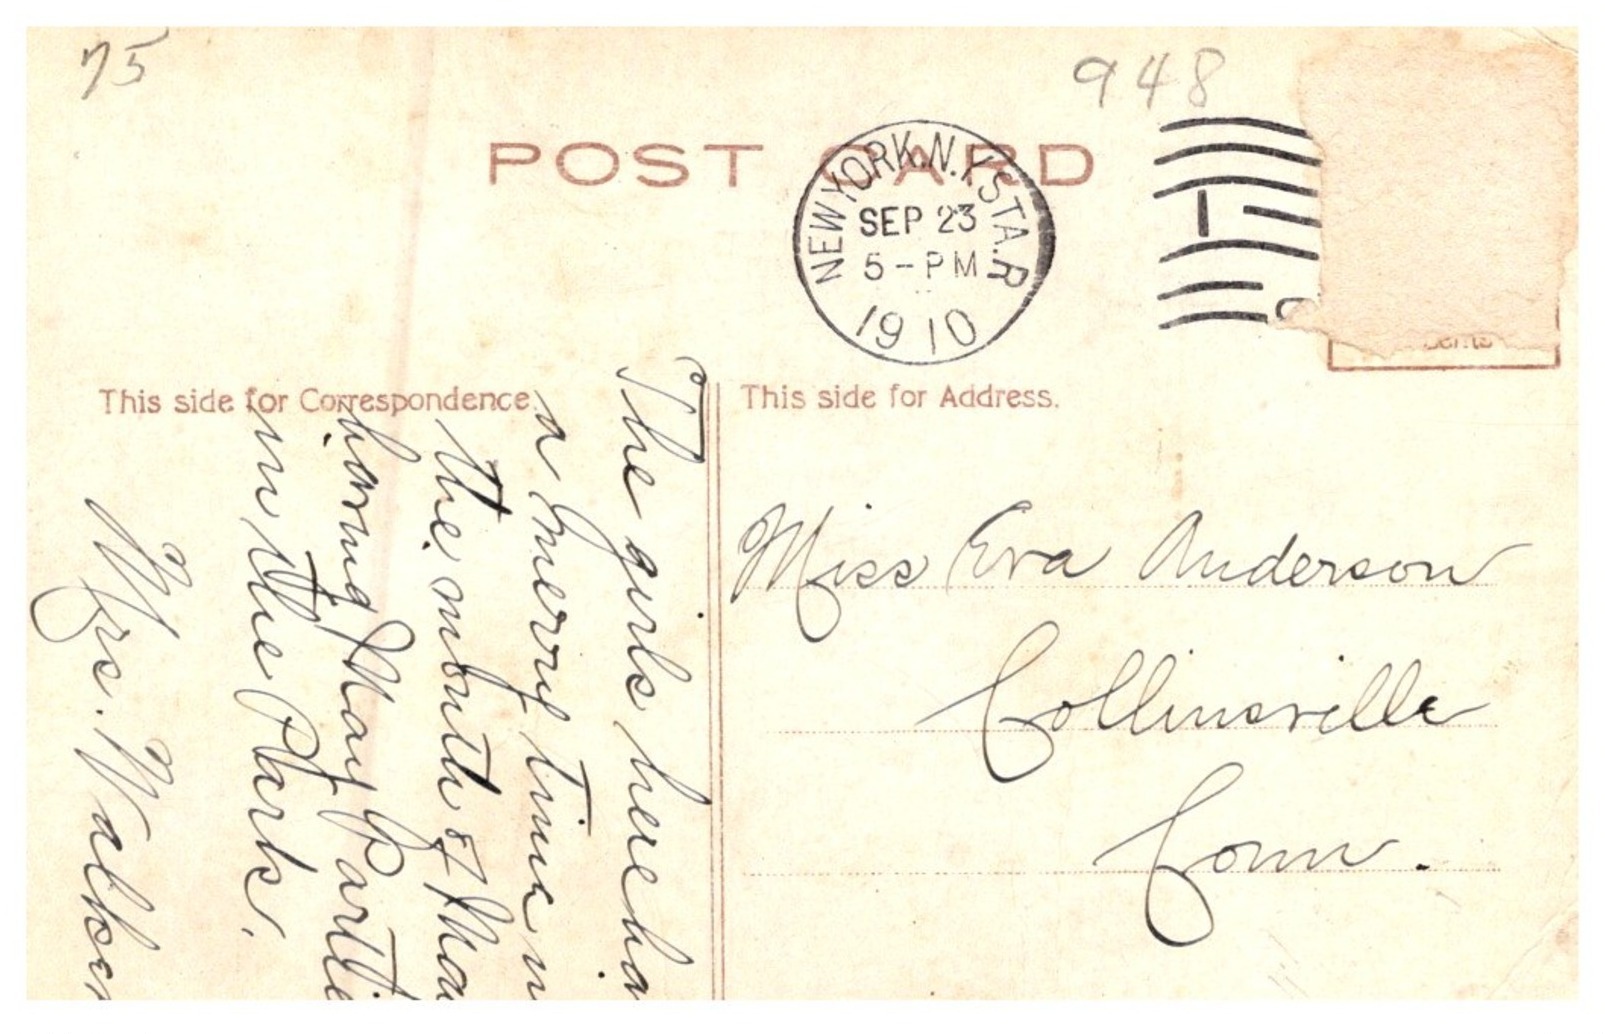 75
948
POST CARD
NEW YORK, N.Y. STA. R
SEP 23
5-PM
1910
This side for Correspondence.
This side for Address.
The girls here ha
a merry time in
the month of Ma
having May Partie
in the Park.
Mrs. Walker
Miss Eva Anderson
Collinsville
Conn.